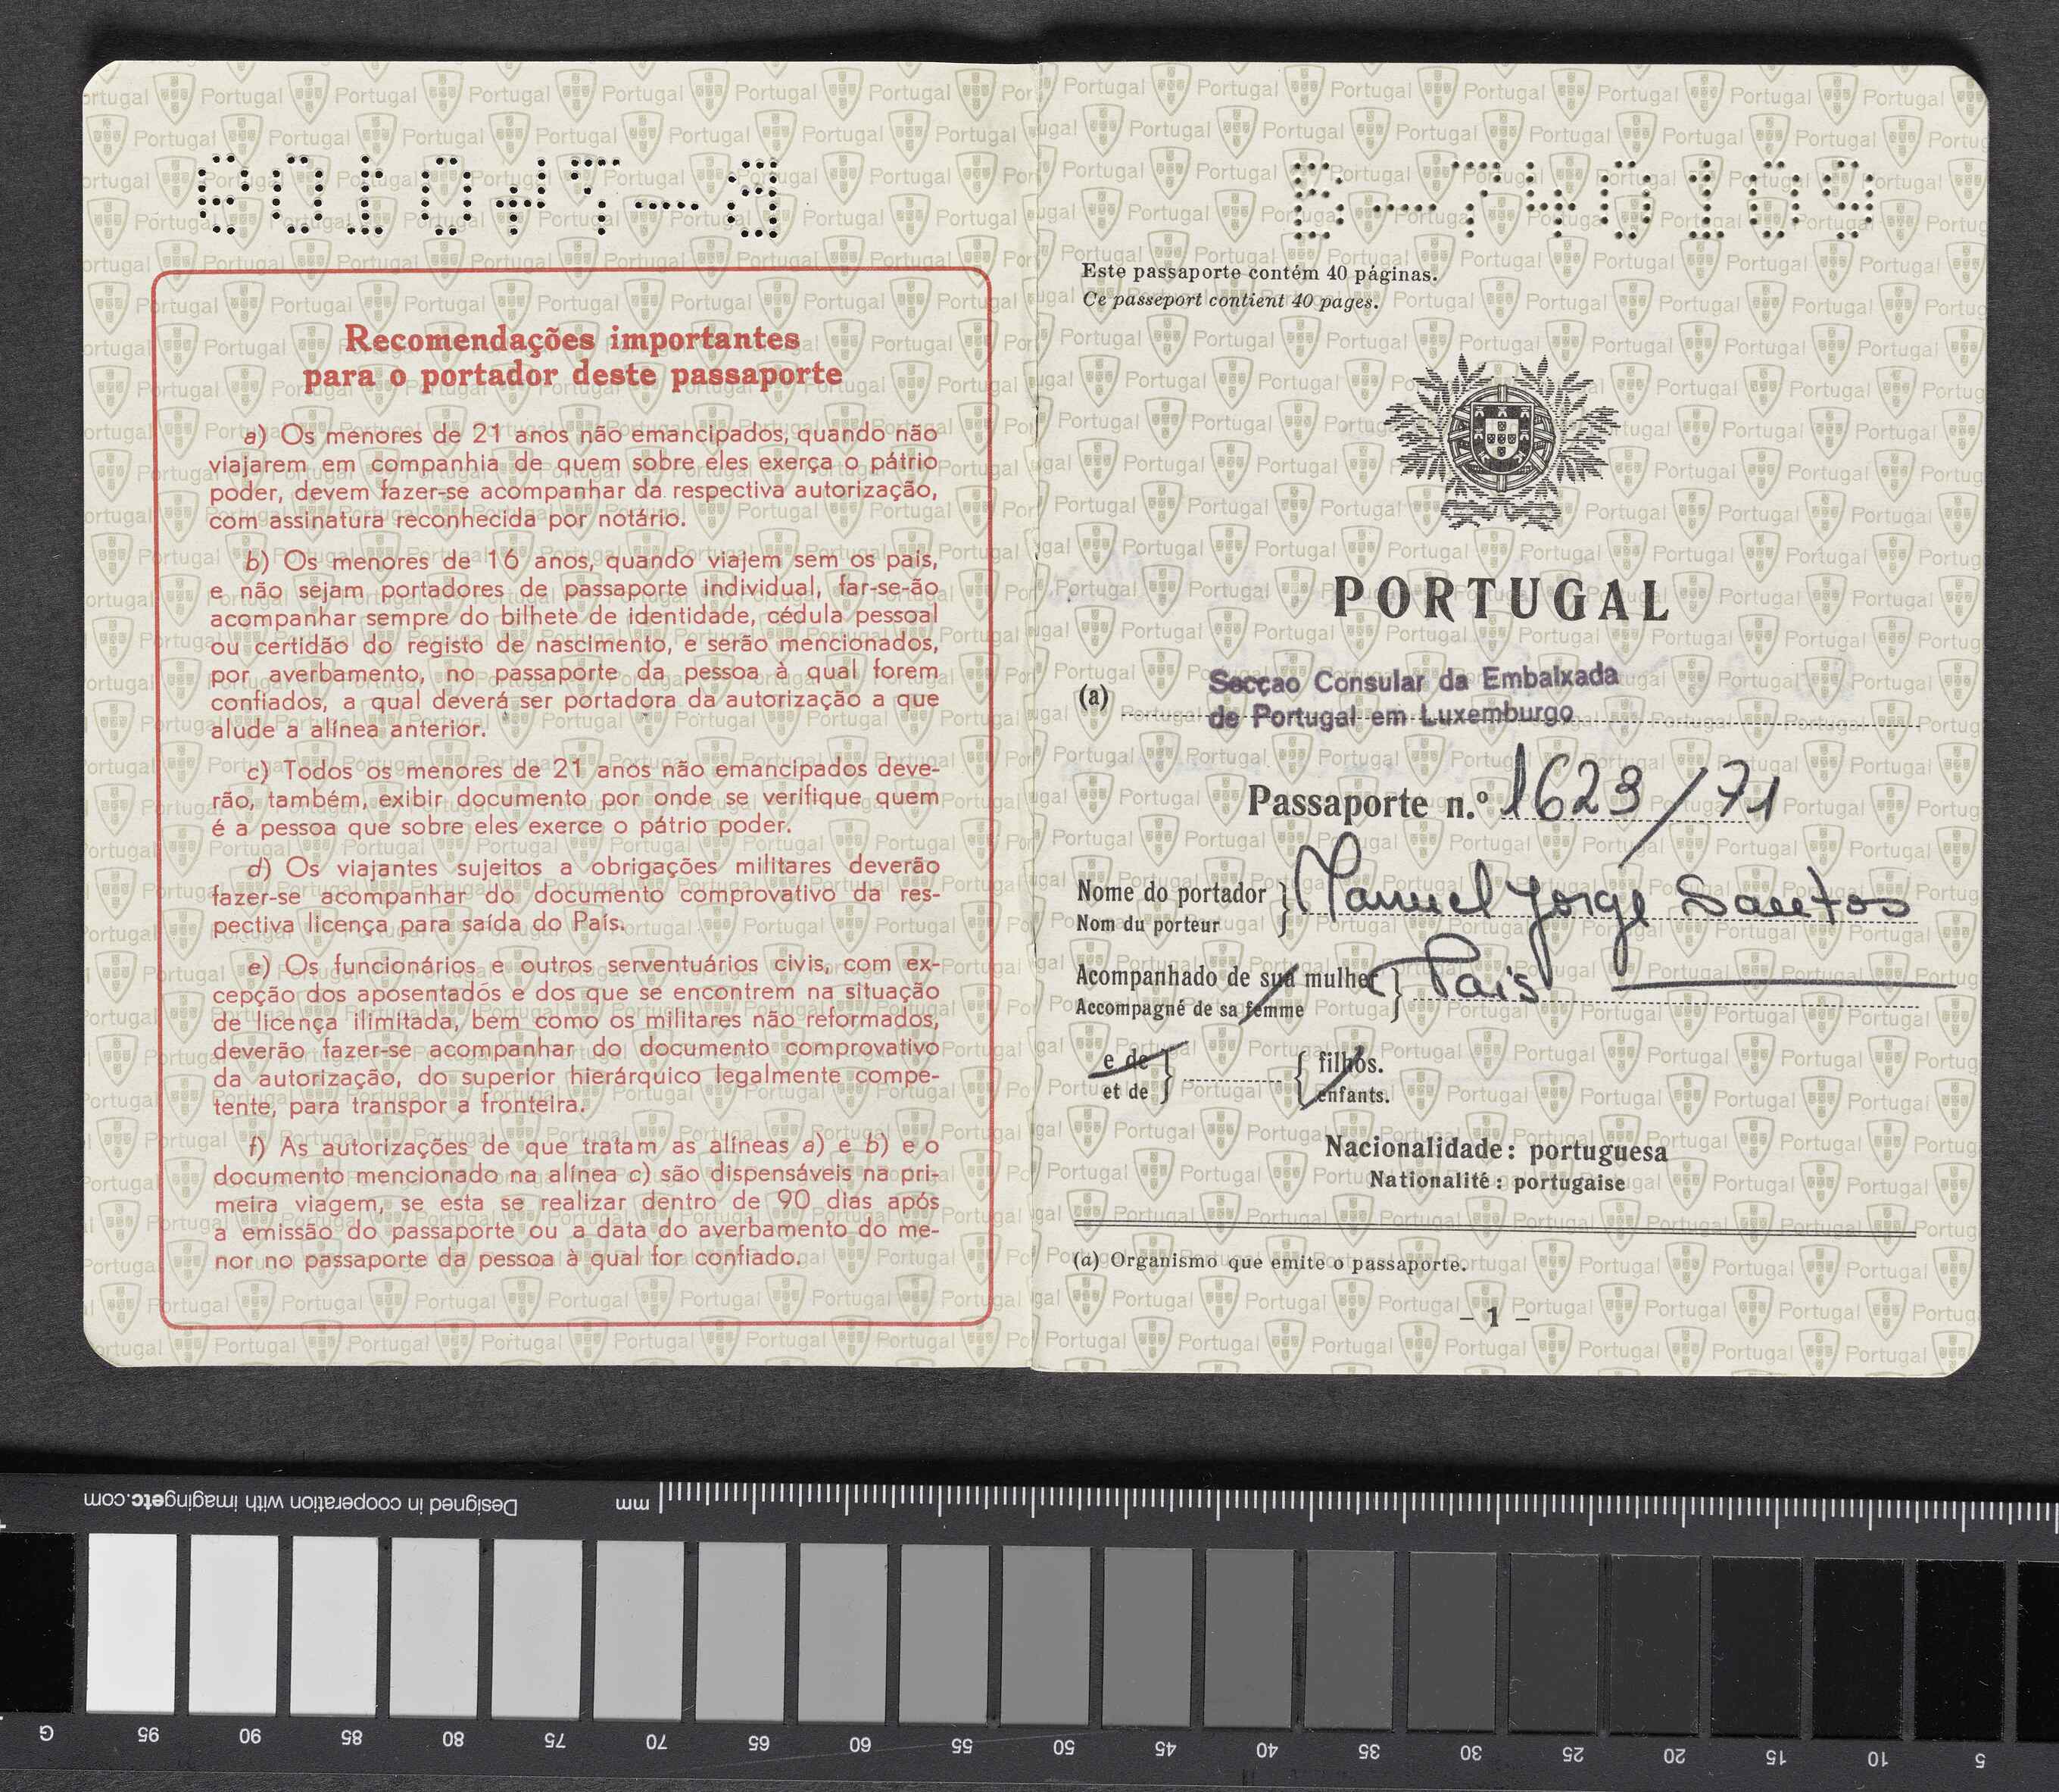 Recomendações importantes
para o portador deste passaporte
a) Os menores de 21 anos não emancipados, quando não
viajarem em companhia de quem sobre eles exerça o pátrio
poder, devem fazer-se acompanhar da respectiva autorização,
com assinatura reconhecida por notário.
b) Os menores de 16 anos, quando viajem sem os pais,
e não sejam portadores de passaporte individual, far-se-ão
acompanhar sempre do bilhete de identidade, cédula pessoal
ou certidão do registo de nascimento, e serão mencionados,
por averbamento, no passaporte da pessoa à qual forem
confiados, a qual deverá ser portadora da autorização a que
alude a alínea anterior.
c) Todos os menores de 21 anos não emancipados deve-
rão, também, exibir documento por onde se verifique quem
é a pessoa que sobre eles exerce o pátrio poder.
d) Os viajantes sujeitos a obrigações militares deverão
fazer-se acompanhar do documento comprovativo da res-
pectiva licença para saída do País.
e) Os funcionários e outros serventuários civis, com ex-
cepção dos aposentados e dos que se encontrem na situação
de licença ilimitada, bem como os militares não reformados,
deverão fazer-se acompanhar do documento comprovativo
da autorização, do superior hierárquico legalmente compe-
tente, para transpor a fronteira.
f) As autorizações de que tratam as alíneas a) e b) e o
documento mencionado na alínea c) são dispensáveis na pri-
meira viagem, se esta se realizar dentro de 90 dias após
a emissão do passaporte ou a data do averbamento do me-
nor no passaporte da pessoa à qual for confiado.
B-740109
Este passaporte contém 40 páginas.
Ce passeport contient 40 pages.
PORTUGAL
(a) Secçao Consular da Embaixada
de Portugal em Luxemburgo
Passaporte n.º 1623/71
Nome do portador } Manuel Jorge Santos
Nom du porteur
Acompanhado de sua mulher } Pais
Accompagné de sa femme
e de } { filhos.
et de enfants.
Nacionalidade: portuguesa
Nationalité: portugaise
(a) Organismo que emite o passaporte.
- 1 -
Designed in cooperation with imagingetc.com mm
G 95 90 85 80 75 70 65 60 55 50 45 40 35 30 25 20 15 10 5